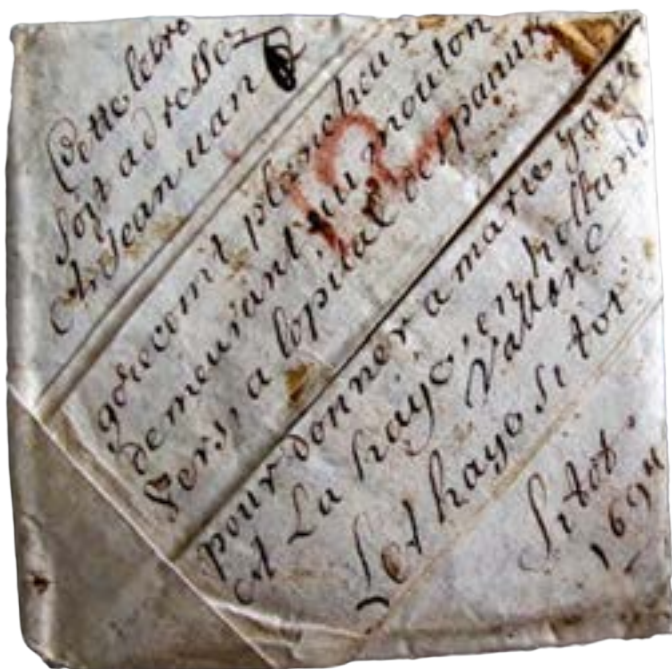 Cette lettre
soit adresser
A Jean uan
gorecom't plancheux
demeurant au mouton
vers, a lopital
pour donner a marie
At La haye, en holland
Vallone
Let hayo si tot
si tot.
1694